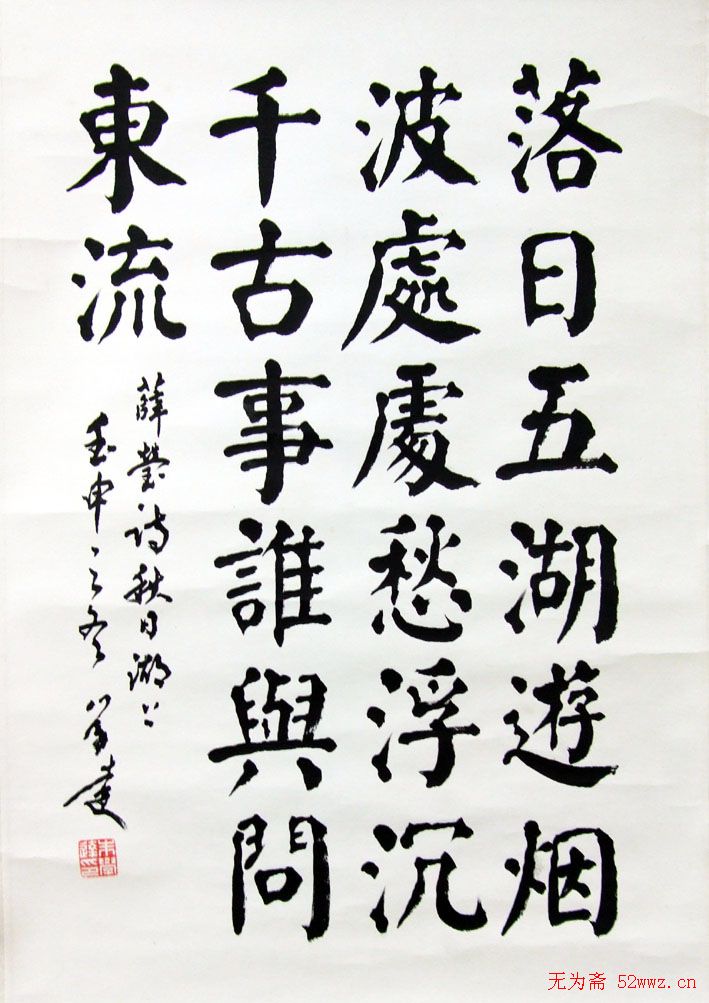 落日五湖遊烟
波處處愁浮沉
千古事誰與問
東流
薛瑩詩秋日湖上
壬申之冬
无为斋 52wwz.cn